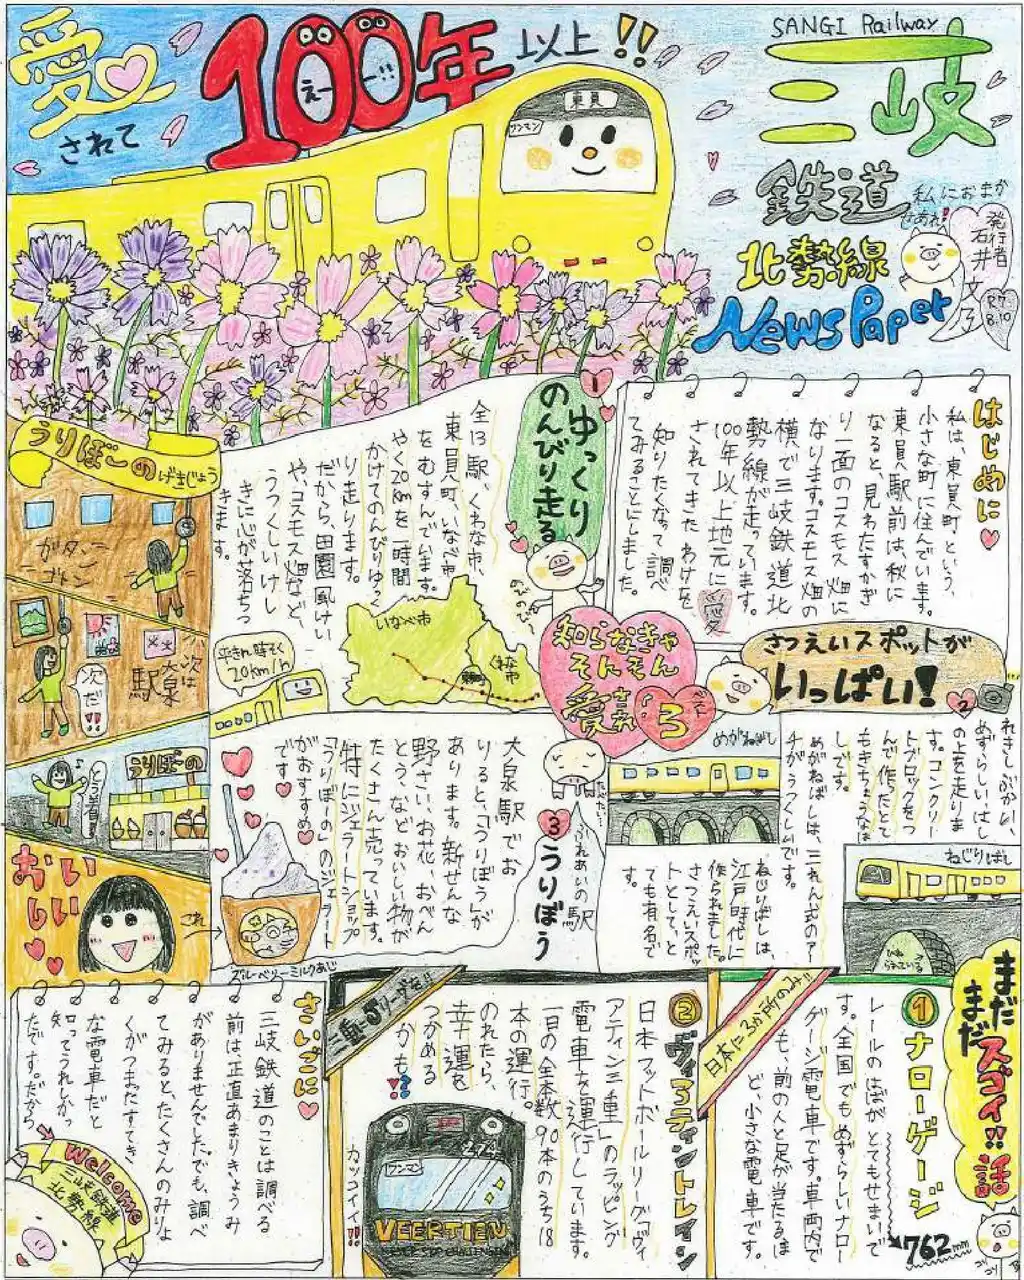 愛されて
100年以上!!
えー!!
東員
ワンマン
SANGI Railway
三岐
鉄道
北勢線
News Paper
私におまか
せあれ!
発行者
石井
R7.
8.10
はじめに
私は、東員町という、
小さな町に住んでいます。
東員駅前は、秋に
なると、見わたすかぎ
り一面のコスモス畑に
なります。コスモス畑の
横で三岐鉄道北
勢線が走っています。
100年以上地元に愛
されてきたわけを
知りたくなって調べ
てみることにしました。
1
ゆっくり
のんびり走る
全13駅、くわな市、
東員町、いなべ市
をむすんでいます。
やく20kmを一時間
かけてのんびりゆっく
り走ります。
だから、田園風けい
や、コスモス畑など、
うつくしいけし
きに心が落ちつ
きます。
平きん時そく
20km/h
いなべ市
東員町
くわな
市
知らなきゃ
そんそん
愛され
3
さつえいスポットが
いっぱい!
2
れきしぶかい、
めずらしい、はし
の上を走りま
す。コンクリー
トブロックをつ
んで作ったとて
もきちょうなは
しです。
めがねばしは、三れん式のアー
チがうつくしいです。
めがねばし
ねじりばしは、
江戸時代に
作られました。
さつえいスポッ
トとして、と
ても有名で
す。
ねじりばし
ねじ
られている
3
ふれあいの駅
うりぼう
大泉駅でお
りると、「うりぼう」が
あります。新せんな
野さい、お花、おべん
とう、などおいしい物が
たくさん売っています。
特にジェラートショップ
「うりぼーの」のジェラート
がおすすめ
です。
うりぼーのげきじょう
ガタンー
ゴトン
次は
大泉
駅
次だ!!
とう着!!
うりぼーの
おいしい
これ
ブルーベリーミルクあじ
まだ
まだスゴイ!!話
1 ナローゲージ
レールのはばがとてもせまいで
す。全国でもめずらしいナロー
ゲージ電車です。車両内で
も、前の人と足が当たるほ
ど、小さな電車です。
762mm
日本に3か所のみ!!
2 ヴィアティントレイン
日本フットボールリーグ「ヴィ
アティン三重」のラッピング
電車を運行しています。
一日の全本数90本のうち18
本の運行。
のれたら、
幸運を
つかめる
かも!?
三重・Jリーグを!!
カッコイイ!!
ワンマン
274
VEERTIEN
さいごに
三岐鉄道のことは調べる
前は正直あまりきょうみ
がありませんでした。でも、調べ
てみると、たくさんのみりょ
くがつまだすてき
な電車だと
知ってうれしかっ
たです。だから
Welcome
三岐鉄道
北勢線